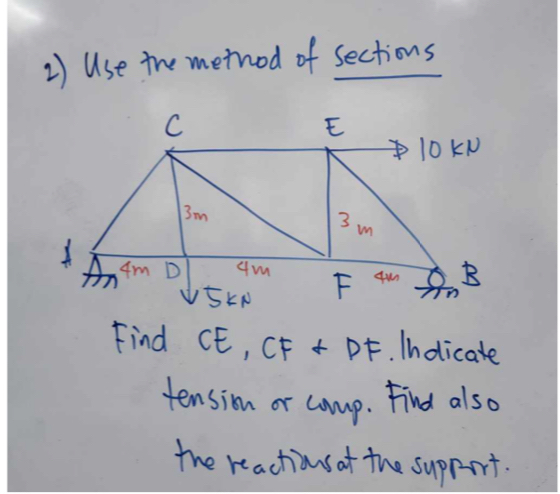 2) Use the method of sections
C
E
10 KN
3m
3m
A
4m
D
4m
F
4m
B
5KN
Find CE, CF & DF. Indicate
tension or comp. Find also
the reactions at the support.